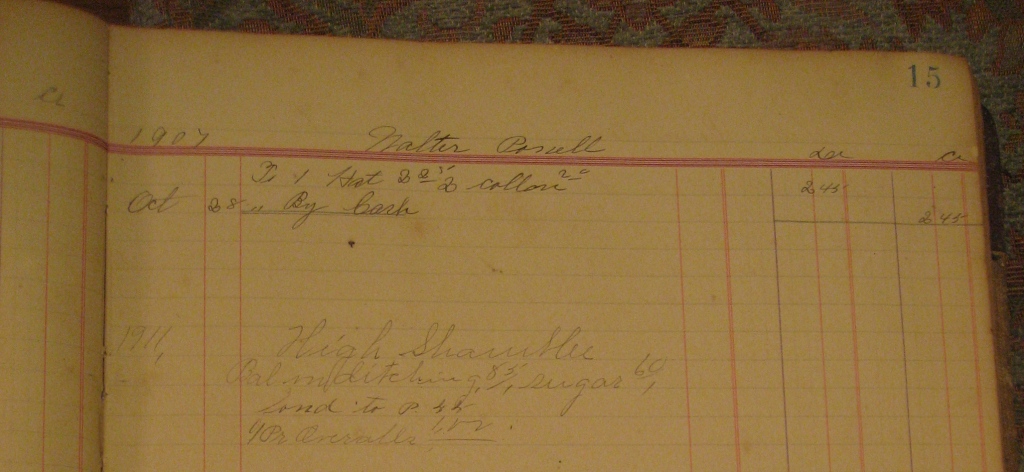 15
Cr
1907 Walter Powell Dr Cr
To 1 Hat 2 25 2 collon 20 2 45
Oct 28 " By Cash 2 45
1911, High Shamblee
Bal on ditching, 85, sugar 60,
to P.
1 Pr Overalls 1,00.